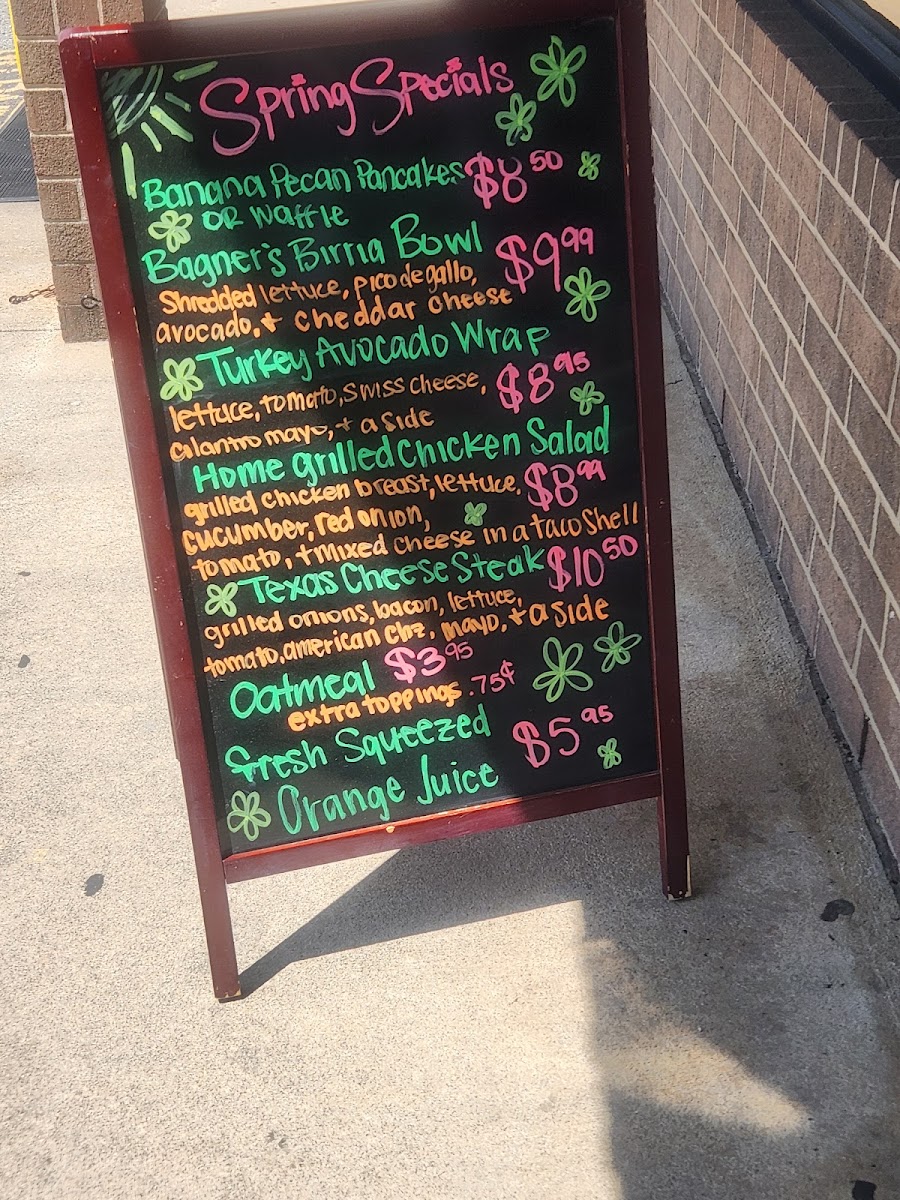 Spring Specials
Banana Pecan Pancakes $8.50
OR Waffle
Bagner's Birria Bowl $9.99
Shredded lettuce, pico de gallo,
avocado, + cheddar cheese
Turkey Avocado Wrap
lettuce, tomato, swiss cheese, $8.95
cilantro mayo, + a side
Home grilled Chicken Salad
grilled chicken breast, lettuce, $8.99
cucumber, red onion,
tomato, + mixed cheese in a taco shell
Texas Cheese Steak $10.50
grilled onions, bacon, lettuce,
tomato, american chz, mayo, + a side
Oatmeal $3.95
extra toppings .75¢
Fresh Squeezed
Orange Juice $5.95